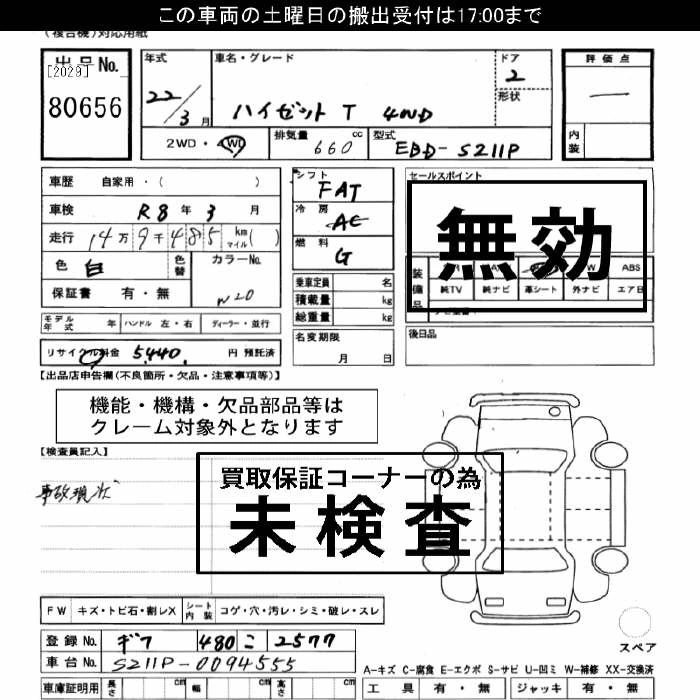 この車両の土曜日の搬出受付は17:00まで
(複合機)対応用紙
出品No.
[2029]
80656
年式
22/3月
車名・グレード
ハイゼット T 4WD
ドア
2
形状
評価点
―
内装
2WD・4WD
排気量 660 cc
型式 EBD-S211P
車歴 自家用・( )
車検 R8年 3月
走行 14万9千485 km マイル( )
色 白
色替
カラーNo.
W20
保証書 有・無
シフト FAT
冷房 AC
燃料 G
セールスポイント
無効
装備品
ABS
純TV 純ナビ 革シート 外ナビ エア日
乗車定員 名
積載量 kg
総重量 kg
モデル年式 年 ハンドル 左・右 ディーラー・並行
名変期限
月 日
後日品
リサイクル料金 5,440 円 預託済
【出品店申告欄(不良箇所・欠品・注意事項等)】
機能・機構・欠品部品等は
クレーム対象外となります
【検査員記入】
事故現状
買取保証コーナーの為
未検査
FW キズ・トビ石・割レX シート内装 コゲ・穴・汚レ・シミ・破レ・スレ
登録No. ギフ 480 こ 2577
車台No. S211P-0094555
スペア
A-キズ C-腐食 E-エクボ S-サビ U-凹ミ W-補修 XX-交換済
車庫証明用 長さ cm 幅 cm 高さ cm
工具 有・無 ジャッキ 有・無